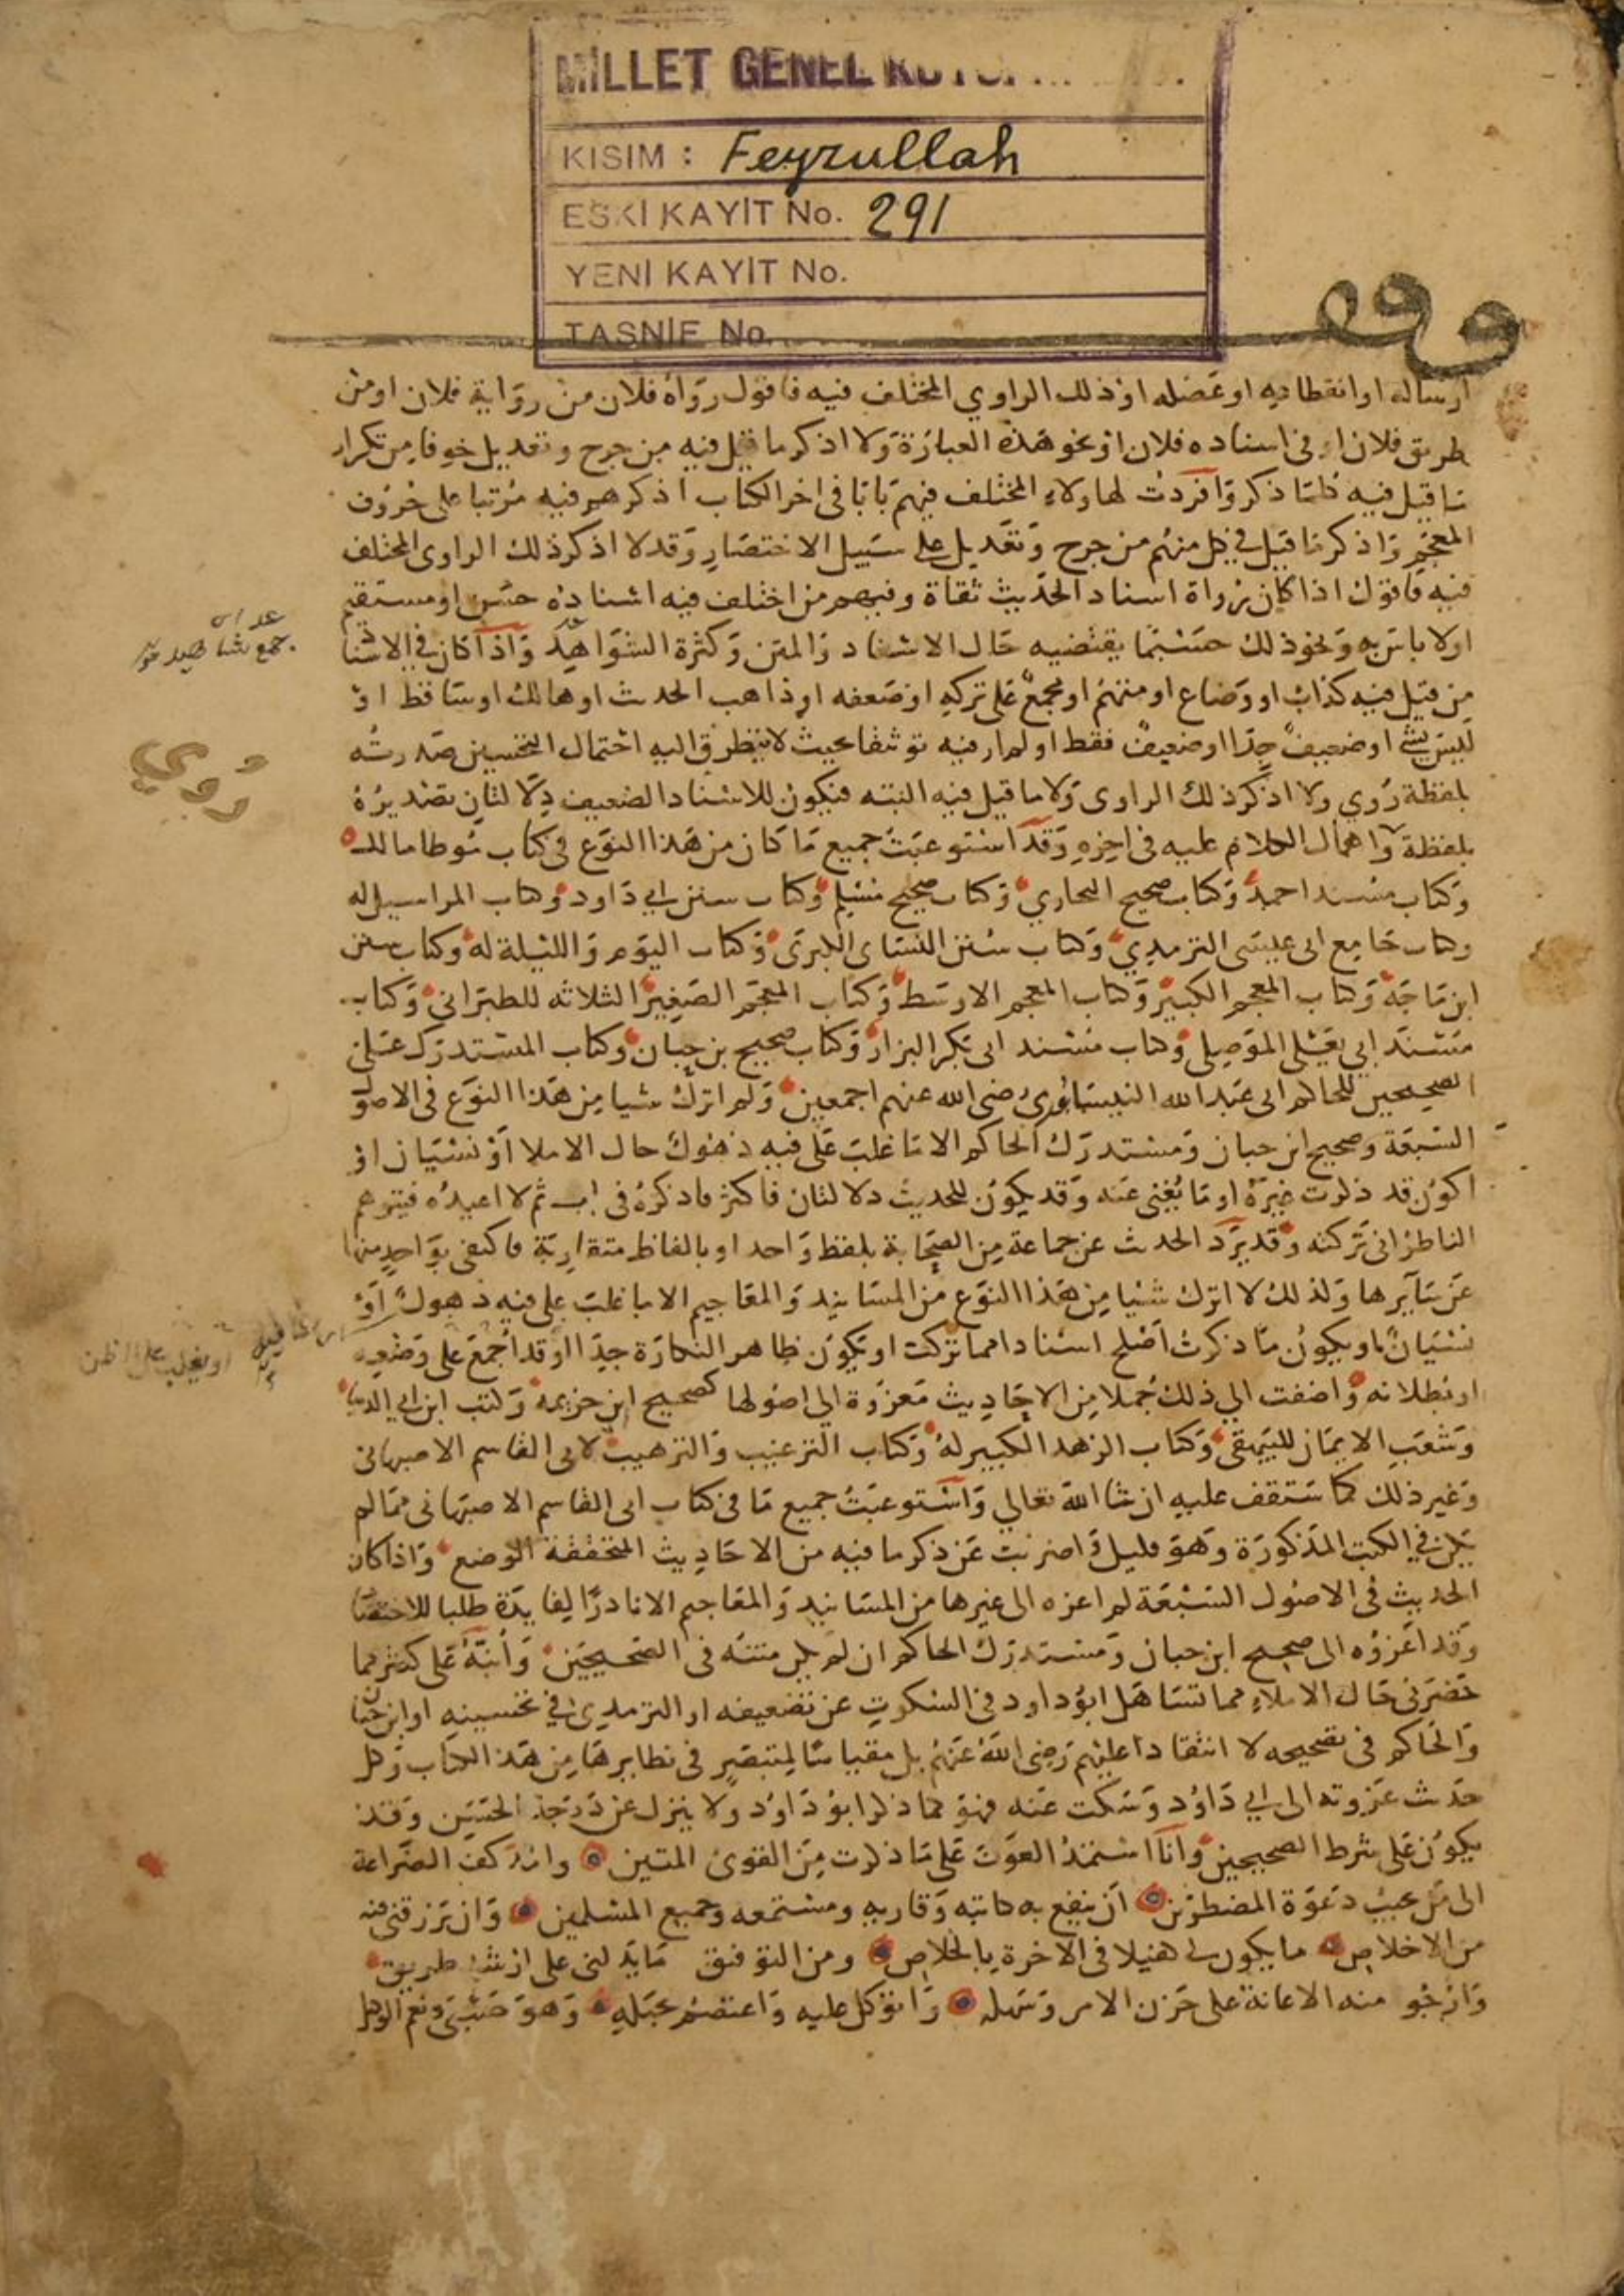 MİLLET GENEL
KISIM : Feyzullah
ESKİ KAYIT No. 291
YENİ KAYIT No.
TASNİF No.
وقف
ارساله او انقطاعه او عضله او ذلك الراوي المختلف فيه فاقول رواه فلان من رواية فلان او من
طريق فلان او في اسناده فلان او نحو هذه العبارة ولا اذكر ما قيل فيه من جرح وتعديل خوفا من تكرار
ما قيل فيه كلما ذكر وافردت لهاولاء المختلف فيهم بابا في اخر الكتاب اذكرهم فيه مرتبا على حروف
المعجم واذكر ما قيل في كل منهم من جرح وتعديل على سبيل الاختصار وقد لا اذكر ذلك الراوي المختلف
فيه فاقول اذا كان رواة اسناد الحديث ثقاة وفيهم من اختلف فيه اسناده حسن او مستقيم
اولا باس به ونحو ذلك حسبما يقتضيه حال الاسناد والمتن وكثرة الشواهد واذا كان في الاسناد
من قيل فيه كذاب او وضاع او متهم او مجمع على تركه او ضعفه او ذاهب الحدث او هالك او ساقط او
ليس بشي او ضعيف جدا او ضعيف فقط او لم ار فيه توثيقا بحيث لا يتطرق اليه احتمال التحسين صدرته
بلفظة روي ولا اذكر ذلك الراوي ولا ما قيل فيه البته فيكون للاسناد الضعيف دلالتان تصديره
بلفظة واهمال الكلام عليه في اخره وقد استوعبت جميع ما كان من هذا النوع في كتاب موطا مالك
وكتاب مسند احمد وكتاب صحيح البخاري وكتاب صحيح مسلم وكتاب سنن ابي داود وكتاب المراسيل له
وكتاب جامع ابي عيسى الترمذي وكتاب سنن النساي الكبرى وكتاب اليوم والليلة له وكتاب سنن
ابن ماجه وكتاب المعجم الكبير وكتاب المعجم الاوسط وكتاب المعجم الصغير الثلاثه للطبراني وكتاب
مسند ابي يعلى الموصلي وكتاب مسند ابي بكر البزار وكتاب صحيح بن حبان وكتاب المستدرك على
الصحيحين للحاكم ابي عبد الله النيسابوري رضي الله عنهم اجمعين ولم اترك شيا من هذا النوع في الاصول
السبعة وصحيح ابن حبان ومستدرك الحاكم الا ما غلب على فيه ذهول حال الاملا او نسيان او
اكون قد ذكرت غيره او ما يغني عنه وقد يكون للحديث دلالتان فاكثر فاذكره في باب ثم لا اعيده فيتوهم
الناظر اني تركته وقد يرد الحدث عن جماعة من الصحابة بلفظ واحد او بالفاظ متقاربة فاكتفي بواحد منها
عن سايرها ولذلك لا اترك شيا من هذا النوع من المسانيد والمعاجيم الا ما غلب علي فيه ذهول او
نسيان او يكون ما ذكرت اصلح اسنادا مما تركت او يكون ظاهر النكارة جدا او قد اجمع على وضعه
او بطلانه واضفت الي ذلك جملا من الاحاديث معزوة الي اصولها كصحيح ابن خزيمه وكتب ابن ابي الدنيا
وشعب الايمان للبيهقي وكتاب الزهد الكبير له وكتاب الترغيب والترهيب لابي القاسم الاصبهاني
وغير ذلك كما ستقف عليه ان شا الله تعالي واستوعبت جميع ما في كتاب ابي القاسم الاصبهاني مما لم
يكن في الكتب المذكورة وهو قليل واضربت عن ذكر ما فيه من الاحاديث المتحققة الوضع واذا كان
الحديث في الاصول السبعة لم اعزه الى غيرها من المسانيد والمعاجيم الا نادرا لفايدة طلبا للاختصار
وقد اعزوه الى صحيح ابن حبان ومستدرك الحاكم ان لم يكن متنه في الصحيحين وانبه على كثير مما
حضرني حال الاملاء مما تساهل ابو داود في السكوت عن تضعيفه او الترمذي في تحسينه او ابن حبان
والحاكم في تصحيحه لا انتقادا عليهم رضي الله عنهم بل مقياسا لمتبصر في نظايرها من هذا الكتاب وكل
حدث عزوته الى ابي داود وسكت عنه فهو كما ذكر ابو داود ولا ينزل عن درجة الحسن وقد
يكون على شرط الصحيحين وانا استمد العون على ما ذكرت من القوي المتين وامد كف الضراعة
الى من يجيب دعوة المضطرين ان ينفع به كاتبه وقاريه ومستمعه وجميع المسلمين وان يرزقني فيه
من الاخلاص ما يكون لي كفيلا في الاخرة بالخلاص ومن التوفيق ما يدلني على ارشد طريق
وارجو منه الاعانة على حزن الامر وسهله واتوكل عليه واعتصم بحبله وهو حسبي ونعم الوكيل
جمع شاهد
روي
او يغلب على الظن